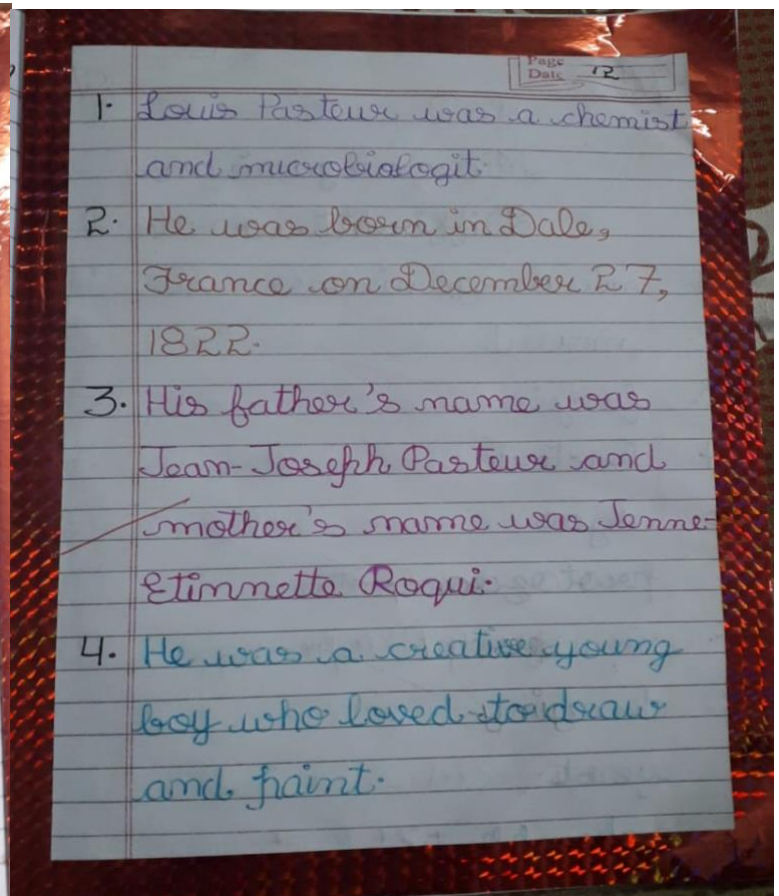 Page
Date 12
1. Louis Pasteur was a chemist
and microbiologit.
2. He was born in Dale,
France on December 27,
1822.
3. His father's name was
Jean-Joseph Pasteur and
mother's name was Jenne-
Etinnette Roqui.
4. He was a creative young
boy who loved to draw
and paint.